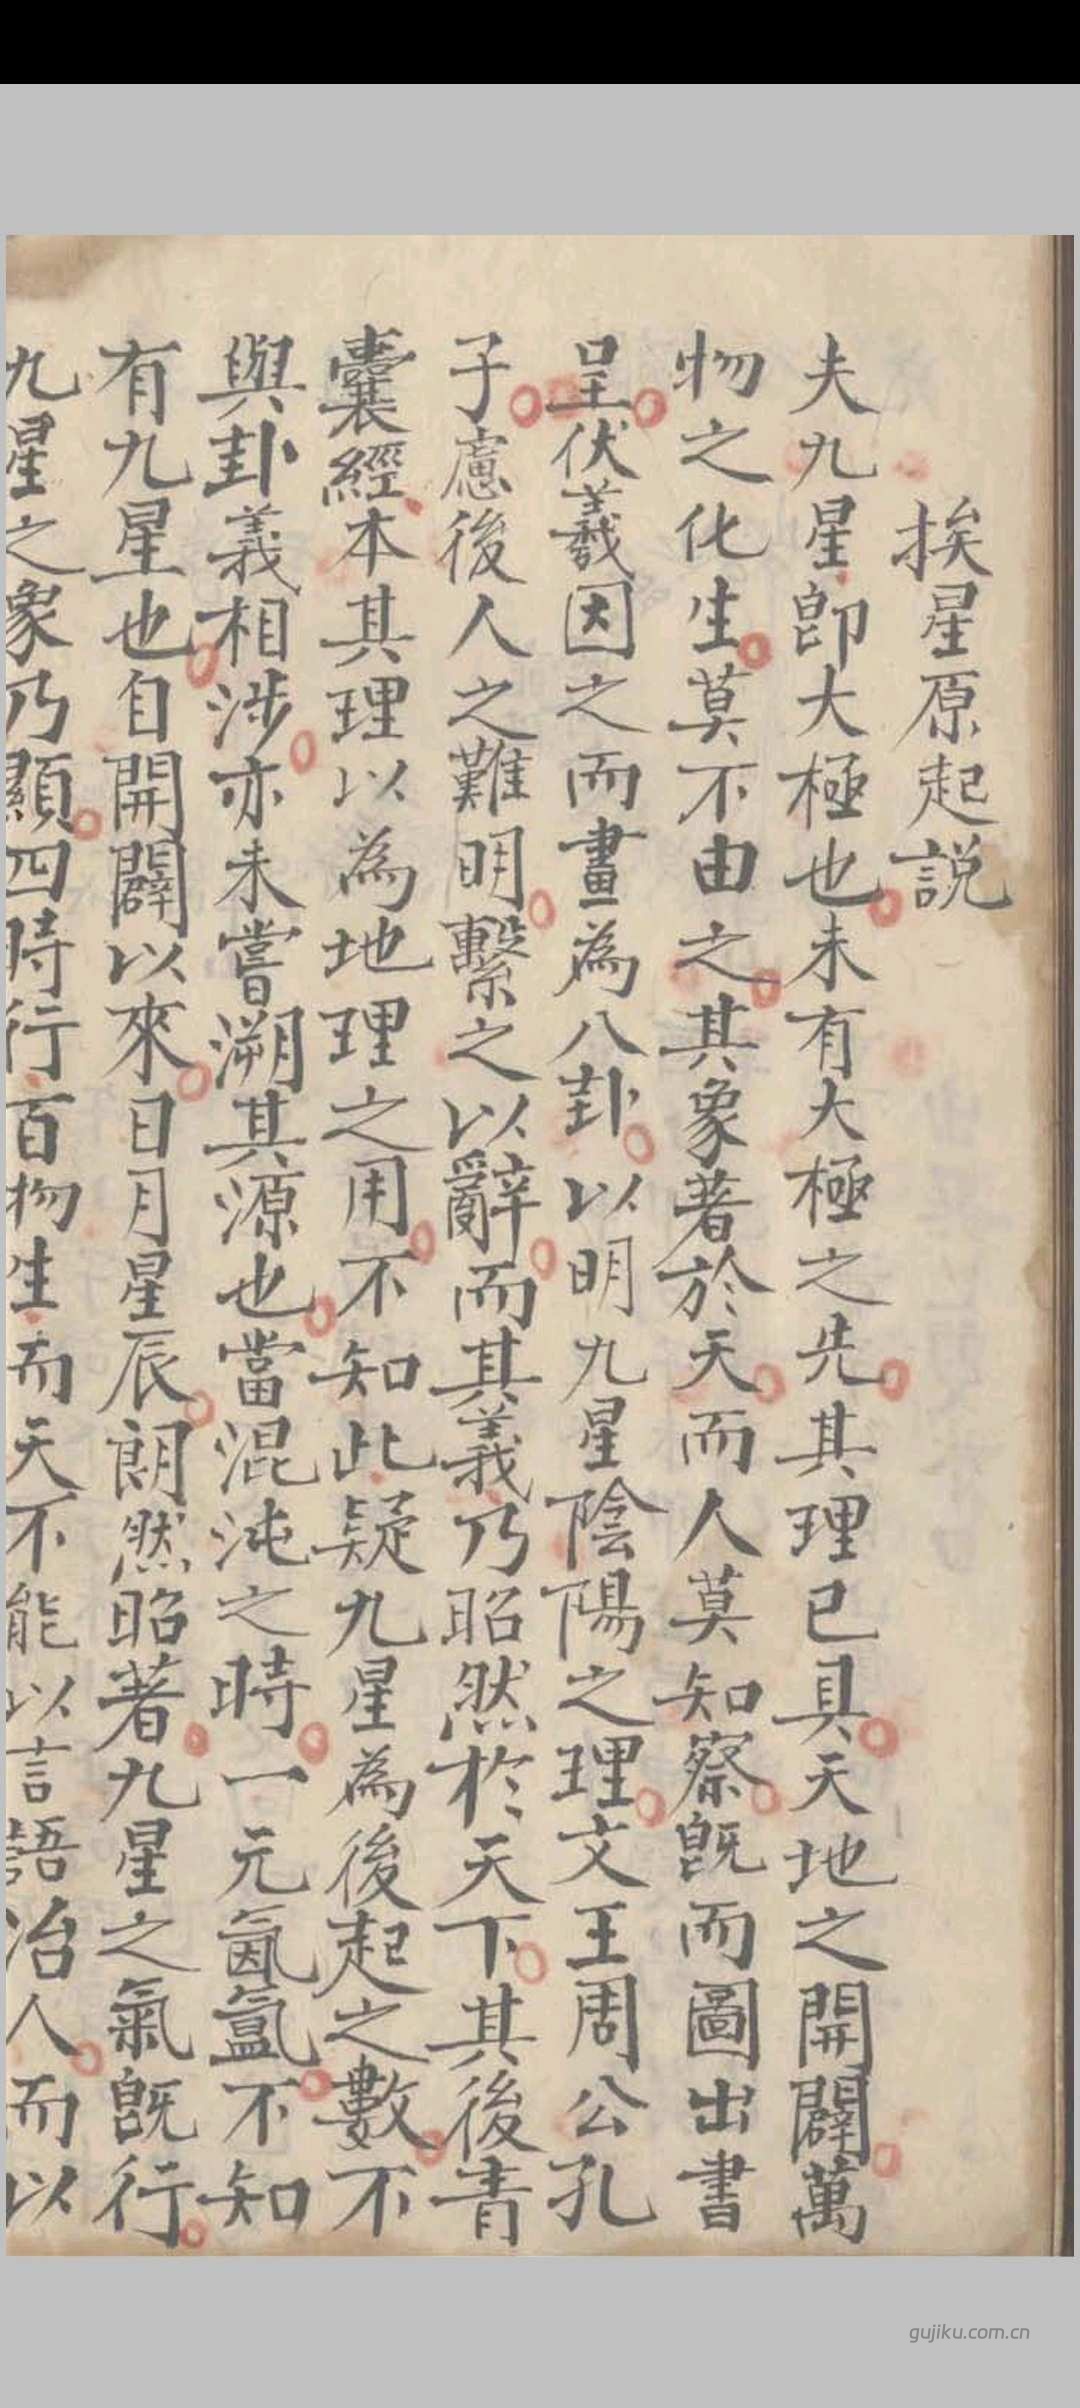 挨星原起説
夫九星即大極也未有大極之先其理已具天地之開闢萬
物之化生莫不由之其象著於天而人莫知察既而圖出書
呈伏羲因之而畫為八卦以明九星陰陽之理文王周公孔
子慮後人之難明繫之以辭而其義乃昭然於天下其後青
囊經本其理以為地理之用不知此疑九星為後起之數不
與卦義相涉亦未嘗溯其源也當混沌之時一元氤氲不知
有九星也自開闢以來日月星辰朗然昭著九星之氣既行
九星之象乃顯四時行百物生而天不能以言語治人而以
gujiku.com.cn